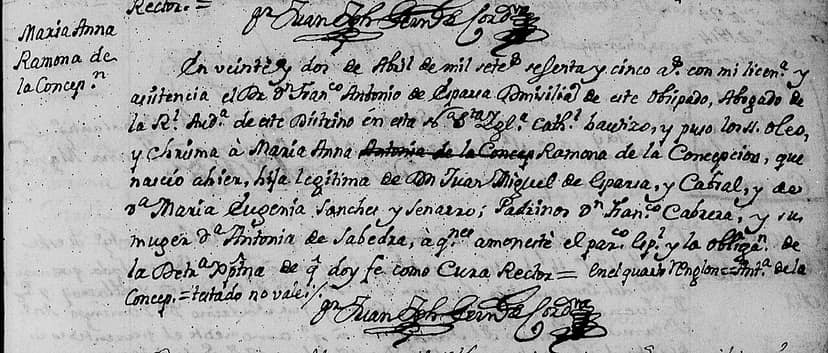 Rector =
Dr Juan Jph Fernz Cordva
Maria Anna
Ramona de
la Concep.n
En veinte y dos de Abril de mil sete.s sesenta y cinco a.s con mi licen.a y
asistencia el Dr. Dn. Fran.co Antonio de Esparsa Domisilia.o de este Obispado, Abogado de
la R.l Aud.a de este Distrito en esta S.ta Ygl.a Cath.l bautizo, y puso los ss. oleo,
y Chrisma à Maria Anna Antonia de la Concep Ramona de la Concepcion, que
nasciò ahier, hija legitima de Dn Juan Miguel de Esparsa, y Cabral, y de
D.a Maria Eugenia Sanches y Senarro; Padrinos D.n Fran.co Cabrera, y su
muger D.a Antonia de Sabedra, à q.nes amonestè el par.co Esp.l y la obligaz.n de
la Dctr.a Xptna de q.e doy fe como Cura Rector = en el quarto renglon = Ant.a de la
Concep. = testado no vale
Dr Juan Jph Fernz Cordva